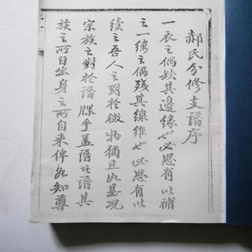 郝氏分修支譜序
一衣之偶缺其邊緣也必思有以補
之一縷之偶殘其線維也必思有以
續之吾人之對於微物猶且如是況
宗族之對於譜牒乎蓋譜牒其
族之所自出身之所自來俾知尊